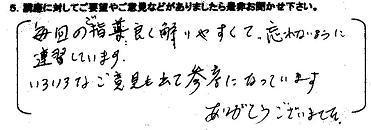 5. 講座に対してご要望やご意見などがありましたら是非お聞かせ下さい。
毎回のご指導良く解りやすくて、忘れないように
連習しています。
いろいろなご意見も出て参考になっています
ありがとうございます。